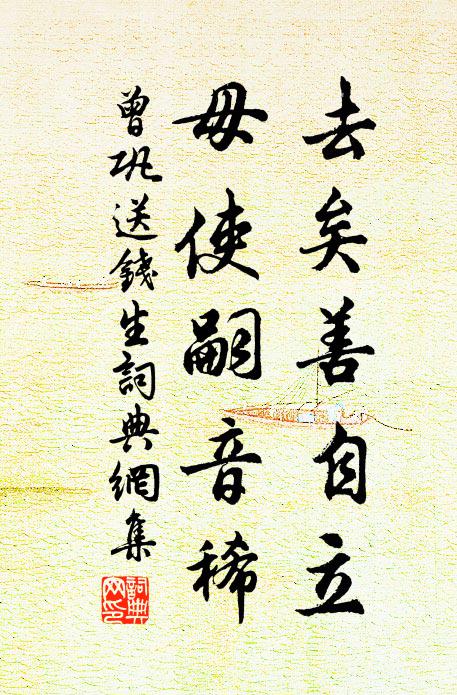 去矣善自立
毋使嗣音稀
曾巩送錢生詞典網集
詞典
网印